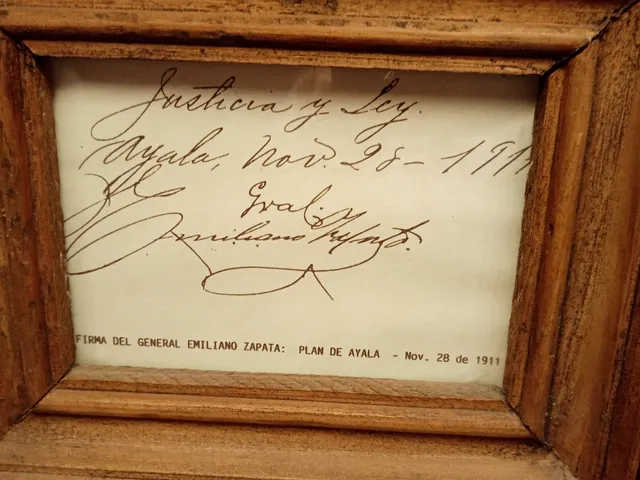 Justicia y Ley.
Ayala, Nov. 28 - 1911
El Gral.
Emiliano Zapata.
FIRMA DEL GENERAL EMILIANO ZAPATA: PLAN DE AYALA - Nov. 28 de 1911